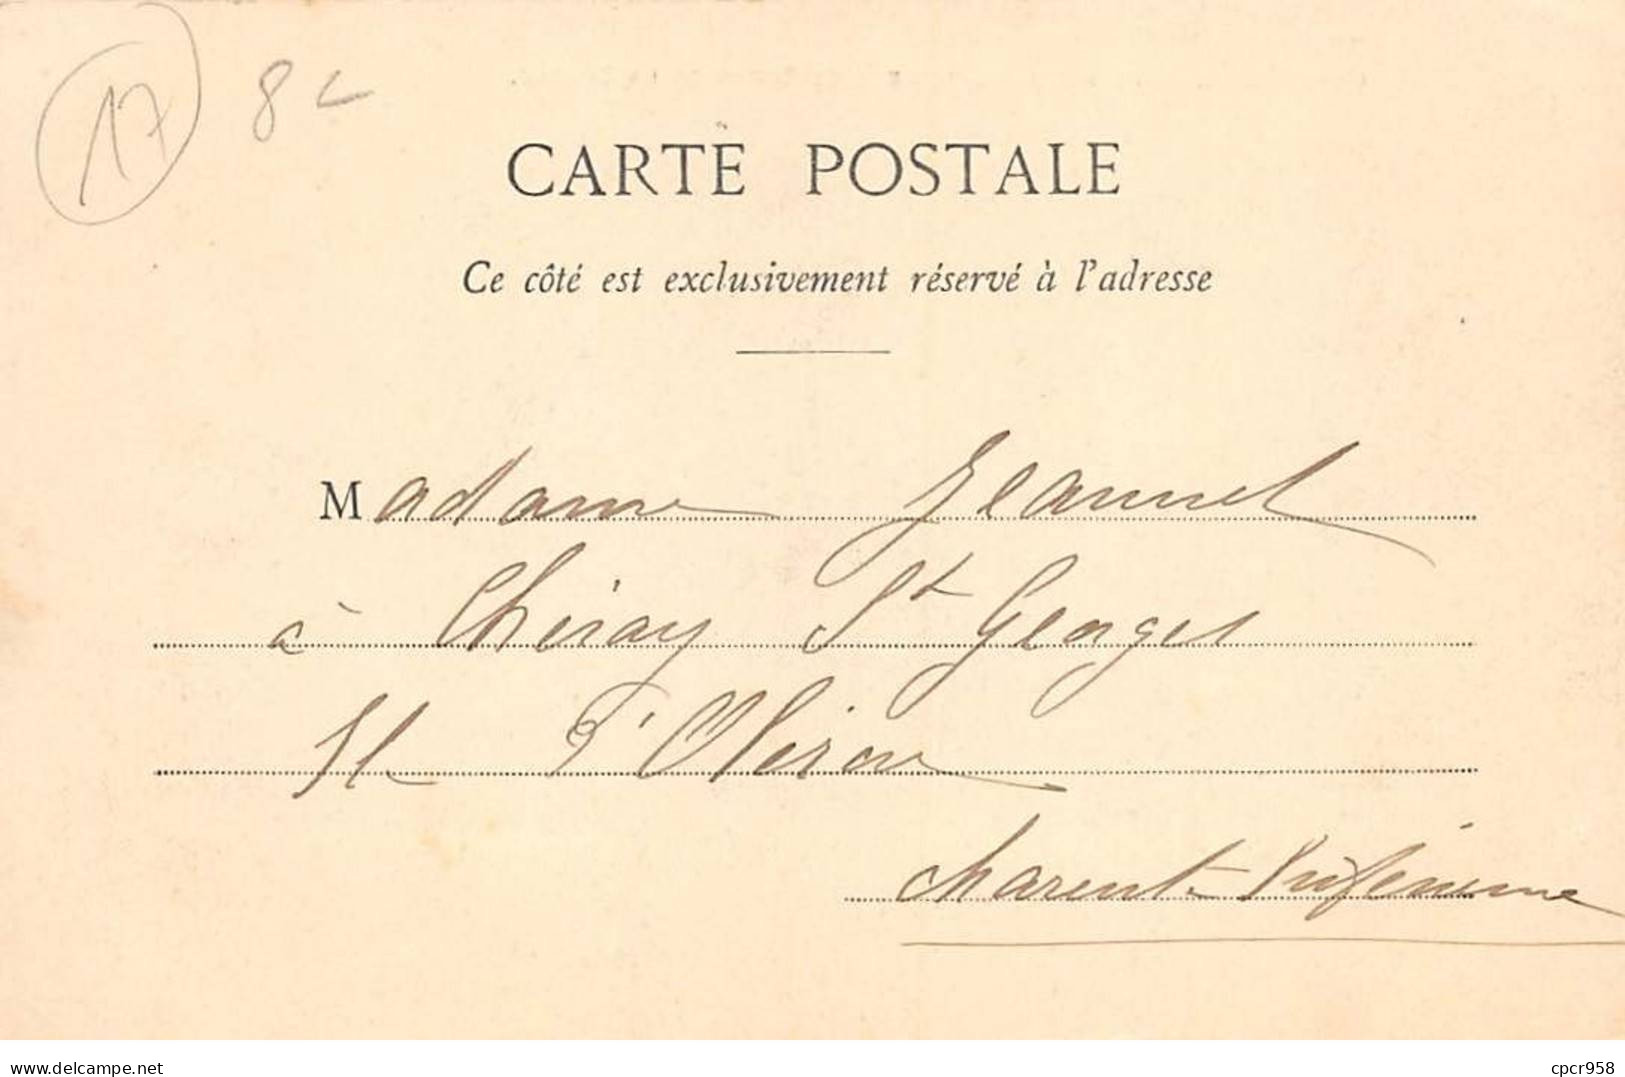 17 8
CARTE POSTALE
Ce côté est exclusivement réservé à l'adresse
Madame Jeannet
à Chéray St Georges
Ile d'Oleron
Charente Inférieure
delcampe.net
cpcr958